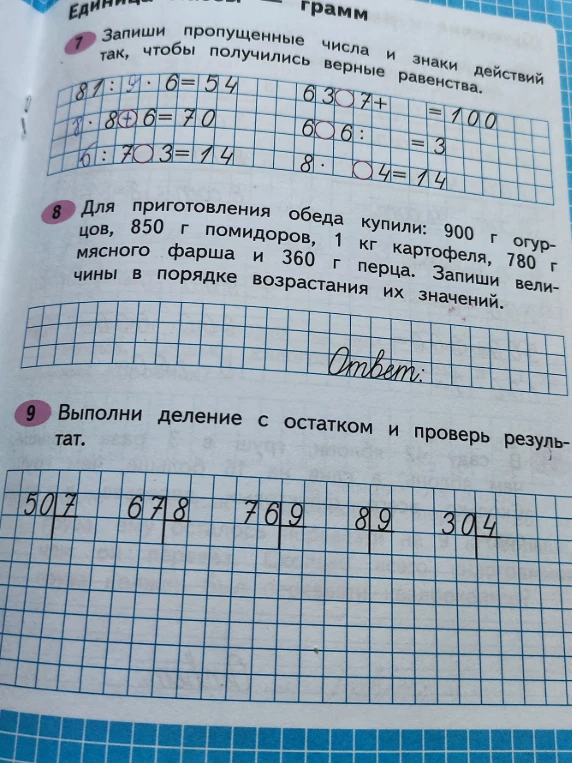 Единица массы — грамм
7 Запиши пропущенные числа и знаки действий
так, чтобы получились верные равенства.
81 : 9 · 6 = 54 63 ○ 7 + = 100
8 · 8 + 6 = 70 6 ○ 6 : = 3
6 : 7 ○ 3 = 14 8 · ○ 4 = 14
8 Для приготовления обеда купили: 900 г огур-
цов, 850 г помидоров, 1 кг картофеля, 780 г
мясного фарша и 360 г перца. Запиши вели-
чины в порядке возрастания их значений.
Ответ:
9 Выполни деление с остатком и проверь резуль-
тат.
50 7 67 8 76 9 8 9 30 4